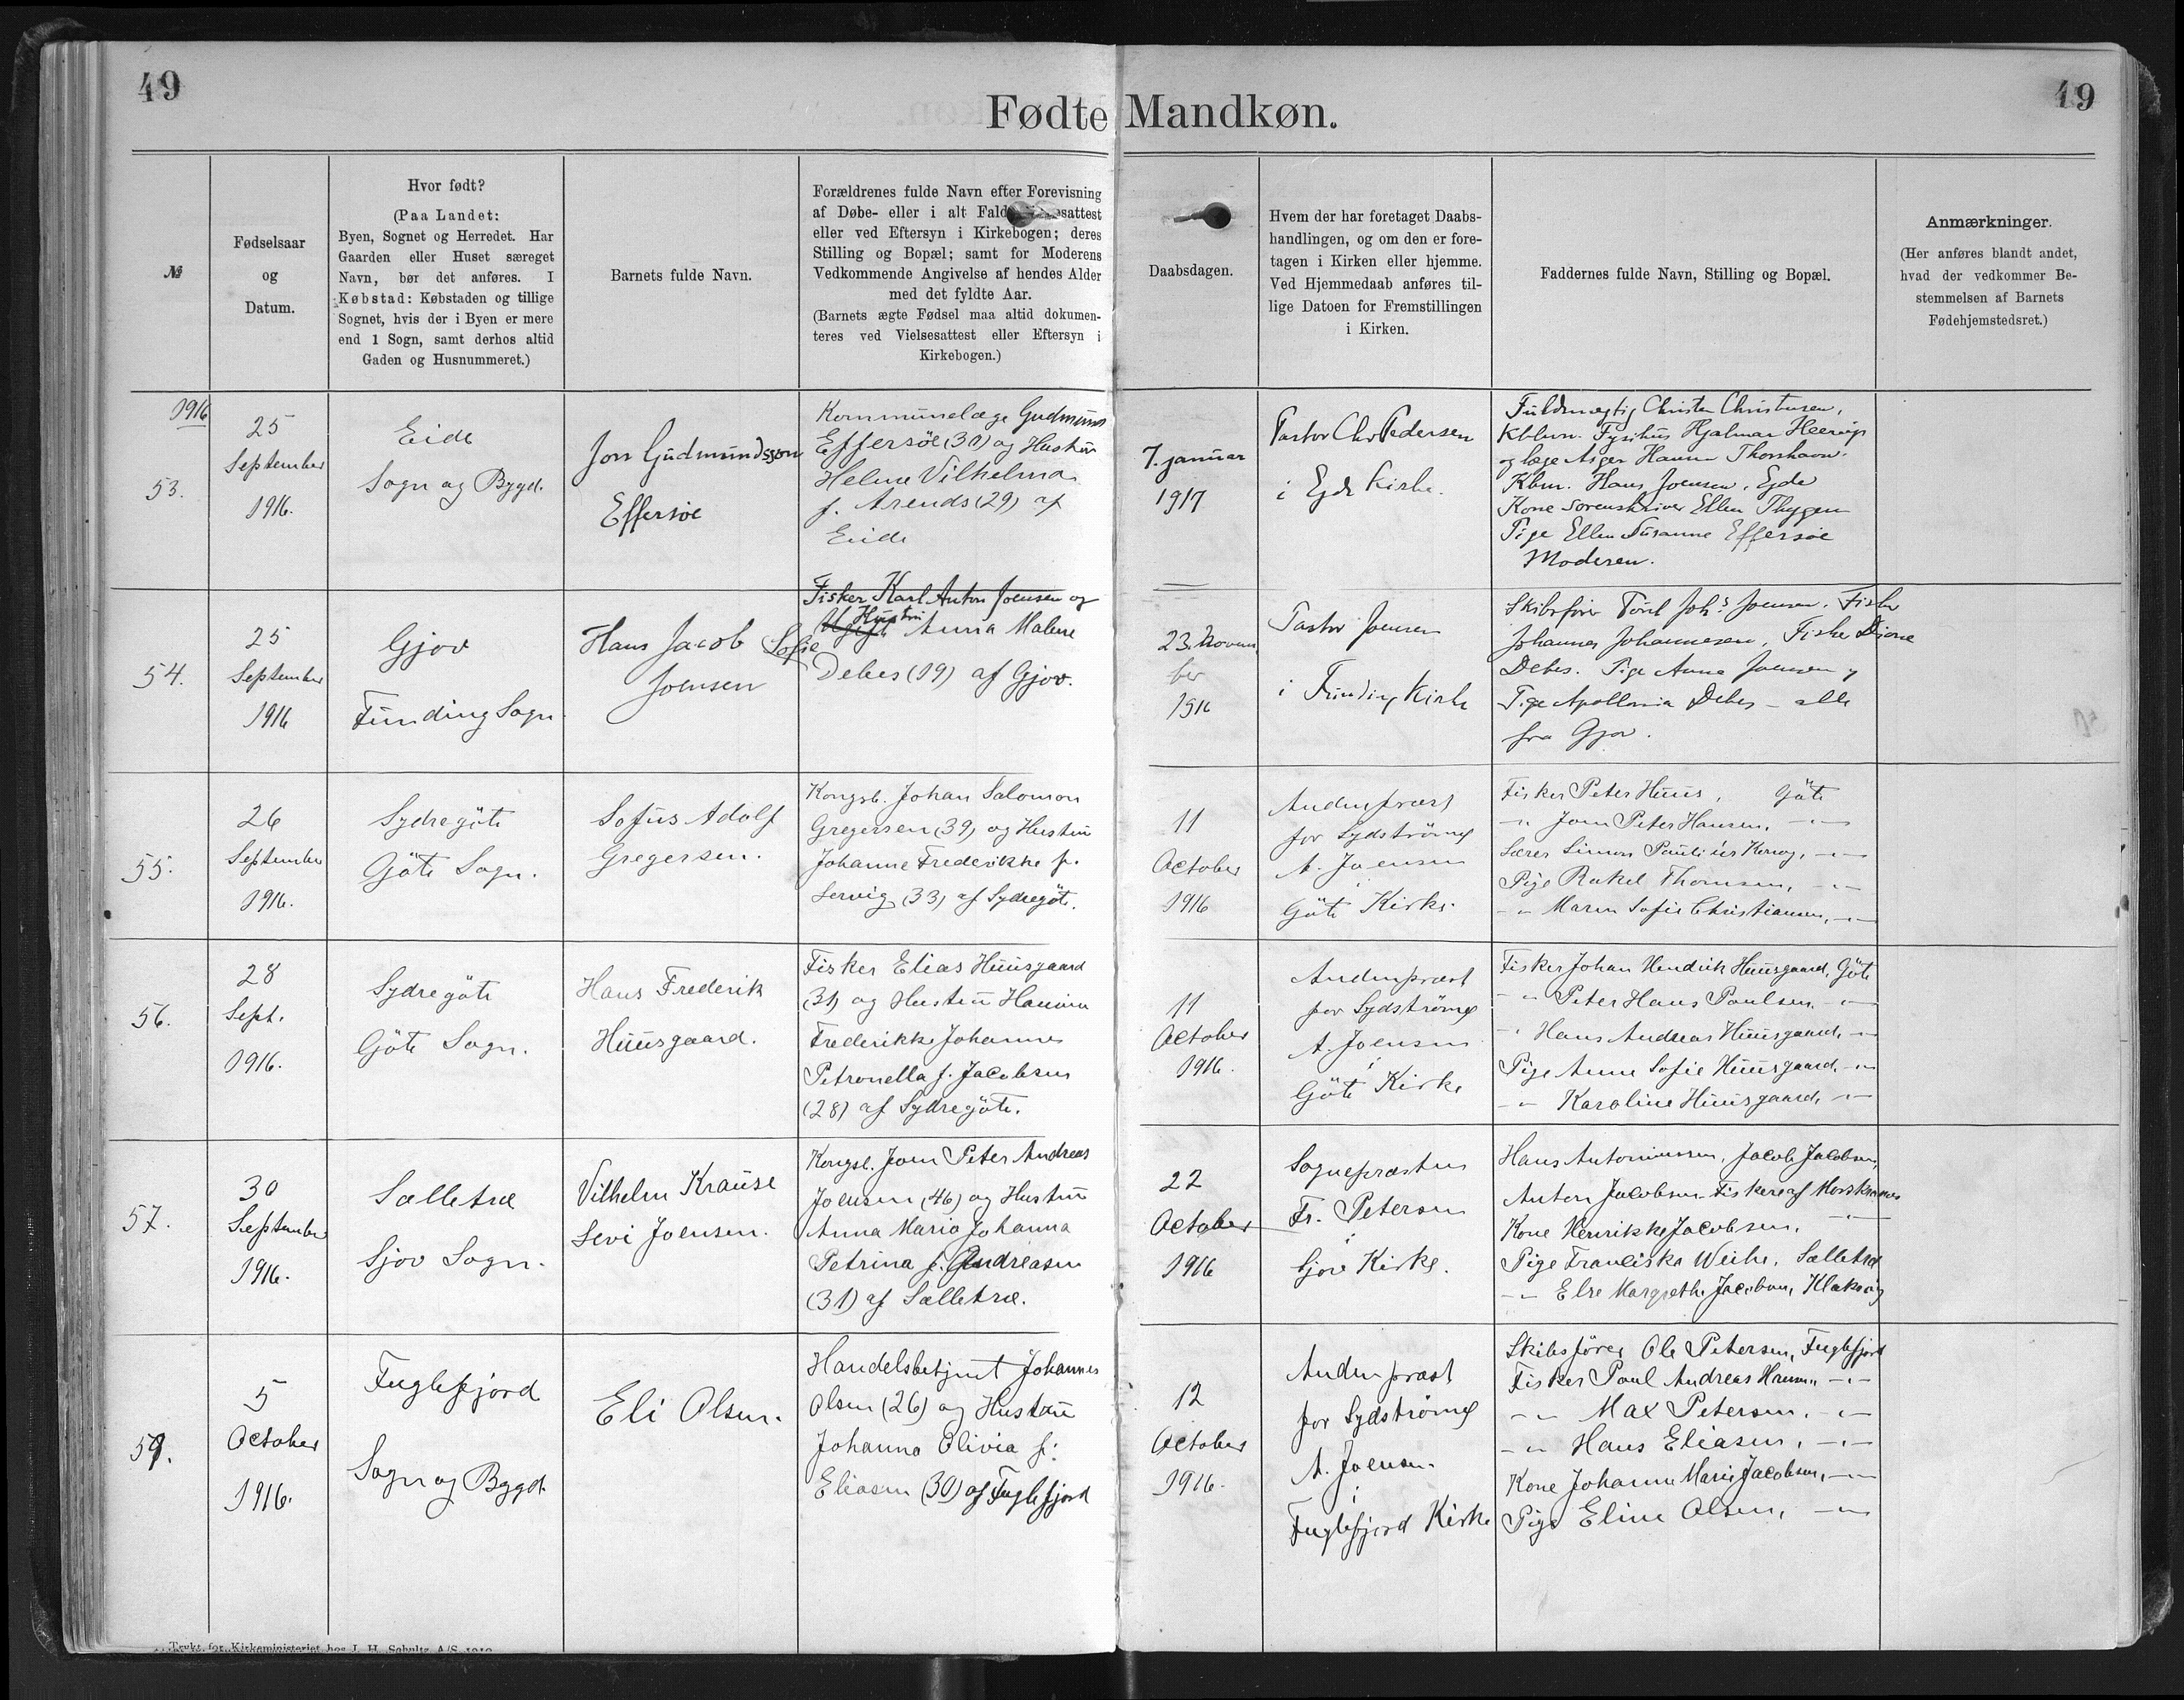 49
49
Fødte Mandkøn.
№
Fødselsaar
og
Datum.
Hvor født?
(Paa Landet:
Byen, Sognet og Herredet. Har
Gaarden eller Huset særeget
Navn, bør det anføres. I
Købstad: Købstaden og tillige
Sognet, hvis der i Byen er mere
end 1 Sogn, samt derhos altid
Gaden og Husnummeret.)
Barnets fulde Navn.
Forældrenes fulde Navn efter Forevisning
af Døbe- eller i alt Fald
eller ved Eftersyn i Kirkebogen; deres
Stilling og Bopæl; samt for Moderens
Vedkommende Angivelse af hendes Alder
med det fyldte Aar.
(Barnets ægte Fødsel maa altid dokumen-
teres ved Vielsesattest eller Eftersyn i
Kirkebogen.)
Daabsdagen.
Hvem der har foretaget Daabs-
handlingen, og om den er fore-
tagen i Kirken eller hjemme.
Ved Hjemmedaab anføres til-
lige Datoen for Fremstillingen
i Kirken.
Faddernes fulde Navn, Stilling og Bopæl.
Anmærkninger.
(Her anføres blandt andet,
hvad der vedkommer Be-
stemmelsen af Barnets
Fødehjemstedsret.)
1916
53.
25
September
1916.
Eide
Sogn og Bygd.
Jon Gudmundsson
Effersöe
Kommunelæge Gudmund
Effersöe (30) og Hustru
Helene Vilhelma
f. Arends (29) af
Eide
7. januar
1917
Pastor Chr Pedersen
i Ejde Kirke.
Fuldmægtig Christen Christensen,
Kbhvn. Fysikus Hjalmar Heerup
og læge Asger Hansen Thorshavn.
Kbm. Hans Joensen, Ejde
Kone Sorenskriver Ellen Thygesen
Pige Ellen Susanne Effersöe
Moderen.
54.
25
September
1916
Gjov
Funding Sogn
Hans Jacob
Joensen
Fisker Karl Anton Joensen og
Hustru
Sofie Anna Malene
Debes (19) af Gjov.
23. Novem
ber
1916
Pastor Joensen
i Funding Kirke
Skibsfører Poul Johs Joensen. Fisker
Johannes Johannesen, Fisker Djone
Debes. Pige Anna Joensen og
Pige Apollonia Debes – alle
fra Gjov.
55.
26
September
1916.
Sydregöte
Göte Sogn.
Sofus Adolf
Gregersen.
Kongsb. Johan Salomon
Gregersen (39) og Hustru
Johanne Frederikke f.
Servig (33) af Sydregöte.
11
October
1916
Andenpræst
for Sydströmö
A. Joensen
i
Göte Kirke.
Fisker Peter Huus, Göte
-"- Joen Peter Hansen, -"-
Lærer Simon Pauli úr Konoy, -"-
Pige Rakel Thomsen, -"-
-"- Maren Sofie Christiansen, -"-
56.
28
Sept.
1916.
Sydregöte
Göte Sogn.
Hans Frederik
Huusgaard.
Fisker Elias Huusgaard
(31) og Hustru Hanna
Frederikke Johannes
Petronella f. Jacobsen
(28) af Sydregöte.
11
October
1916.
Andenpræst
for Sydströmö
A. Joensen
i
Göte Kirke
Fisker Johan Hendrik Huusgaard, Göte
-"- Peter Hans Poulsen, -"-
-"- Hans Andreas Huusgaard, -"-
Pige Anne Sofie Huusgaard, -"-
-"- Karoline Huusgaard, -"-
57.
30
September
1916.
Selletræ
Sjov Sogn.
Vilhelm Krause
Levi Joensen.
Kongsb. Joen Peter Andreas
Joensen (46) og Hustru
Anna Maria Johanna
Petrina f. Andreasen
(31) af Selletræ.
22
October
1916
Sognepræsten
Fr. Petersen
i
Sjov Kirke.
Hans Antoniussen, Jacob Jacobsen,
Anton Jacobsen Fiskere af Morskranes
Kone Henrikke Jacobsen, -"-
Pige Franciska Weihe, Selletræ
-"- Else Margrethe Jacobsen, Klaksvig
59.
5
October
1916.
Fuglefjord
Sogn og Bygd.
Eli Olsen.
Handelsbetjent Johannes
Olsen (26) og Hustru
Johanna Olivia f.
Eliasen (30) af Fuglefjord
12
October
1916.
Andenpræst
for Sydströmö
A. Joensen.
i
Fuglefjord Kirke
Skibsfører Ole Petersen, Fuglefjord
Fisker Poul Andreas Hansen -"-
-"- Max Petersen, -"-
-"- Hans Eliasen, -"-
Kone Johanne Marie Jacobsen, -"-
Pige Eline Olsen, -"-
Trykt for Kirkeministeriet hos J. H. Schultz A/S